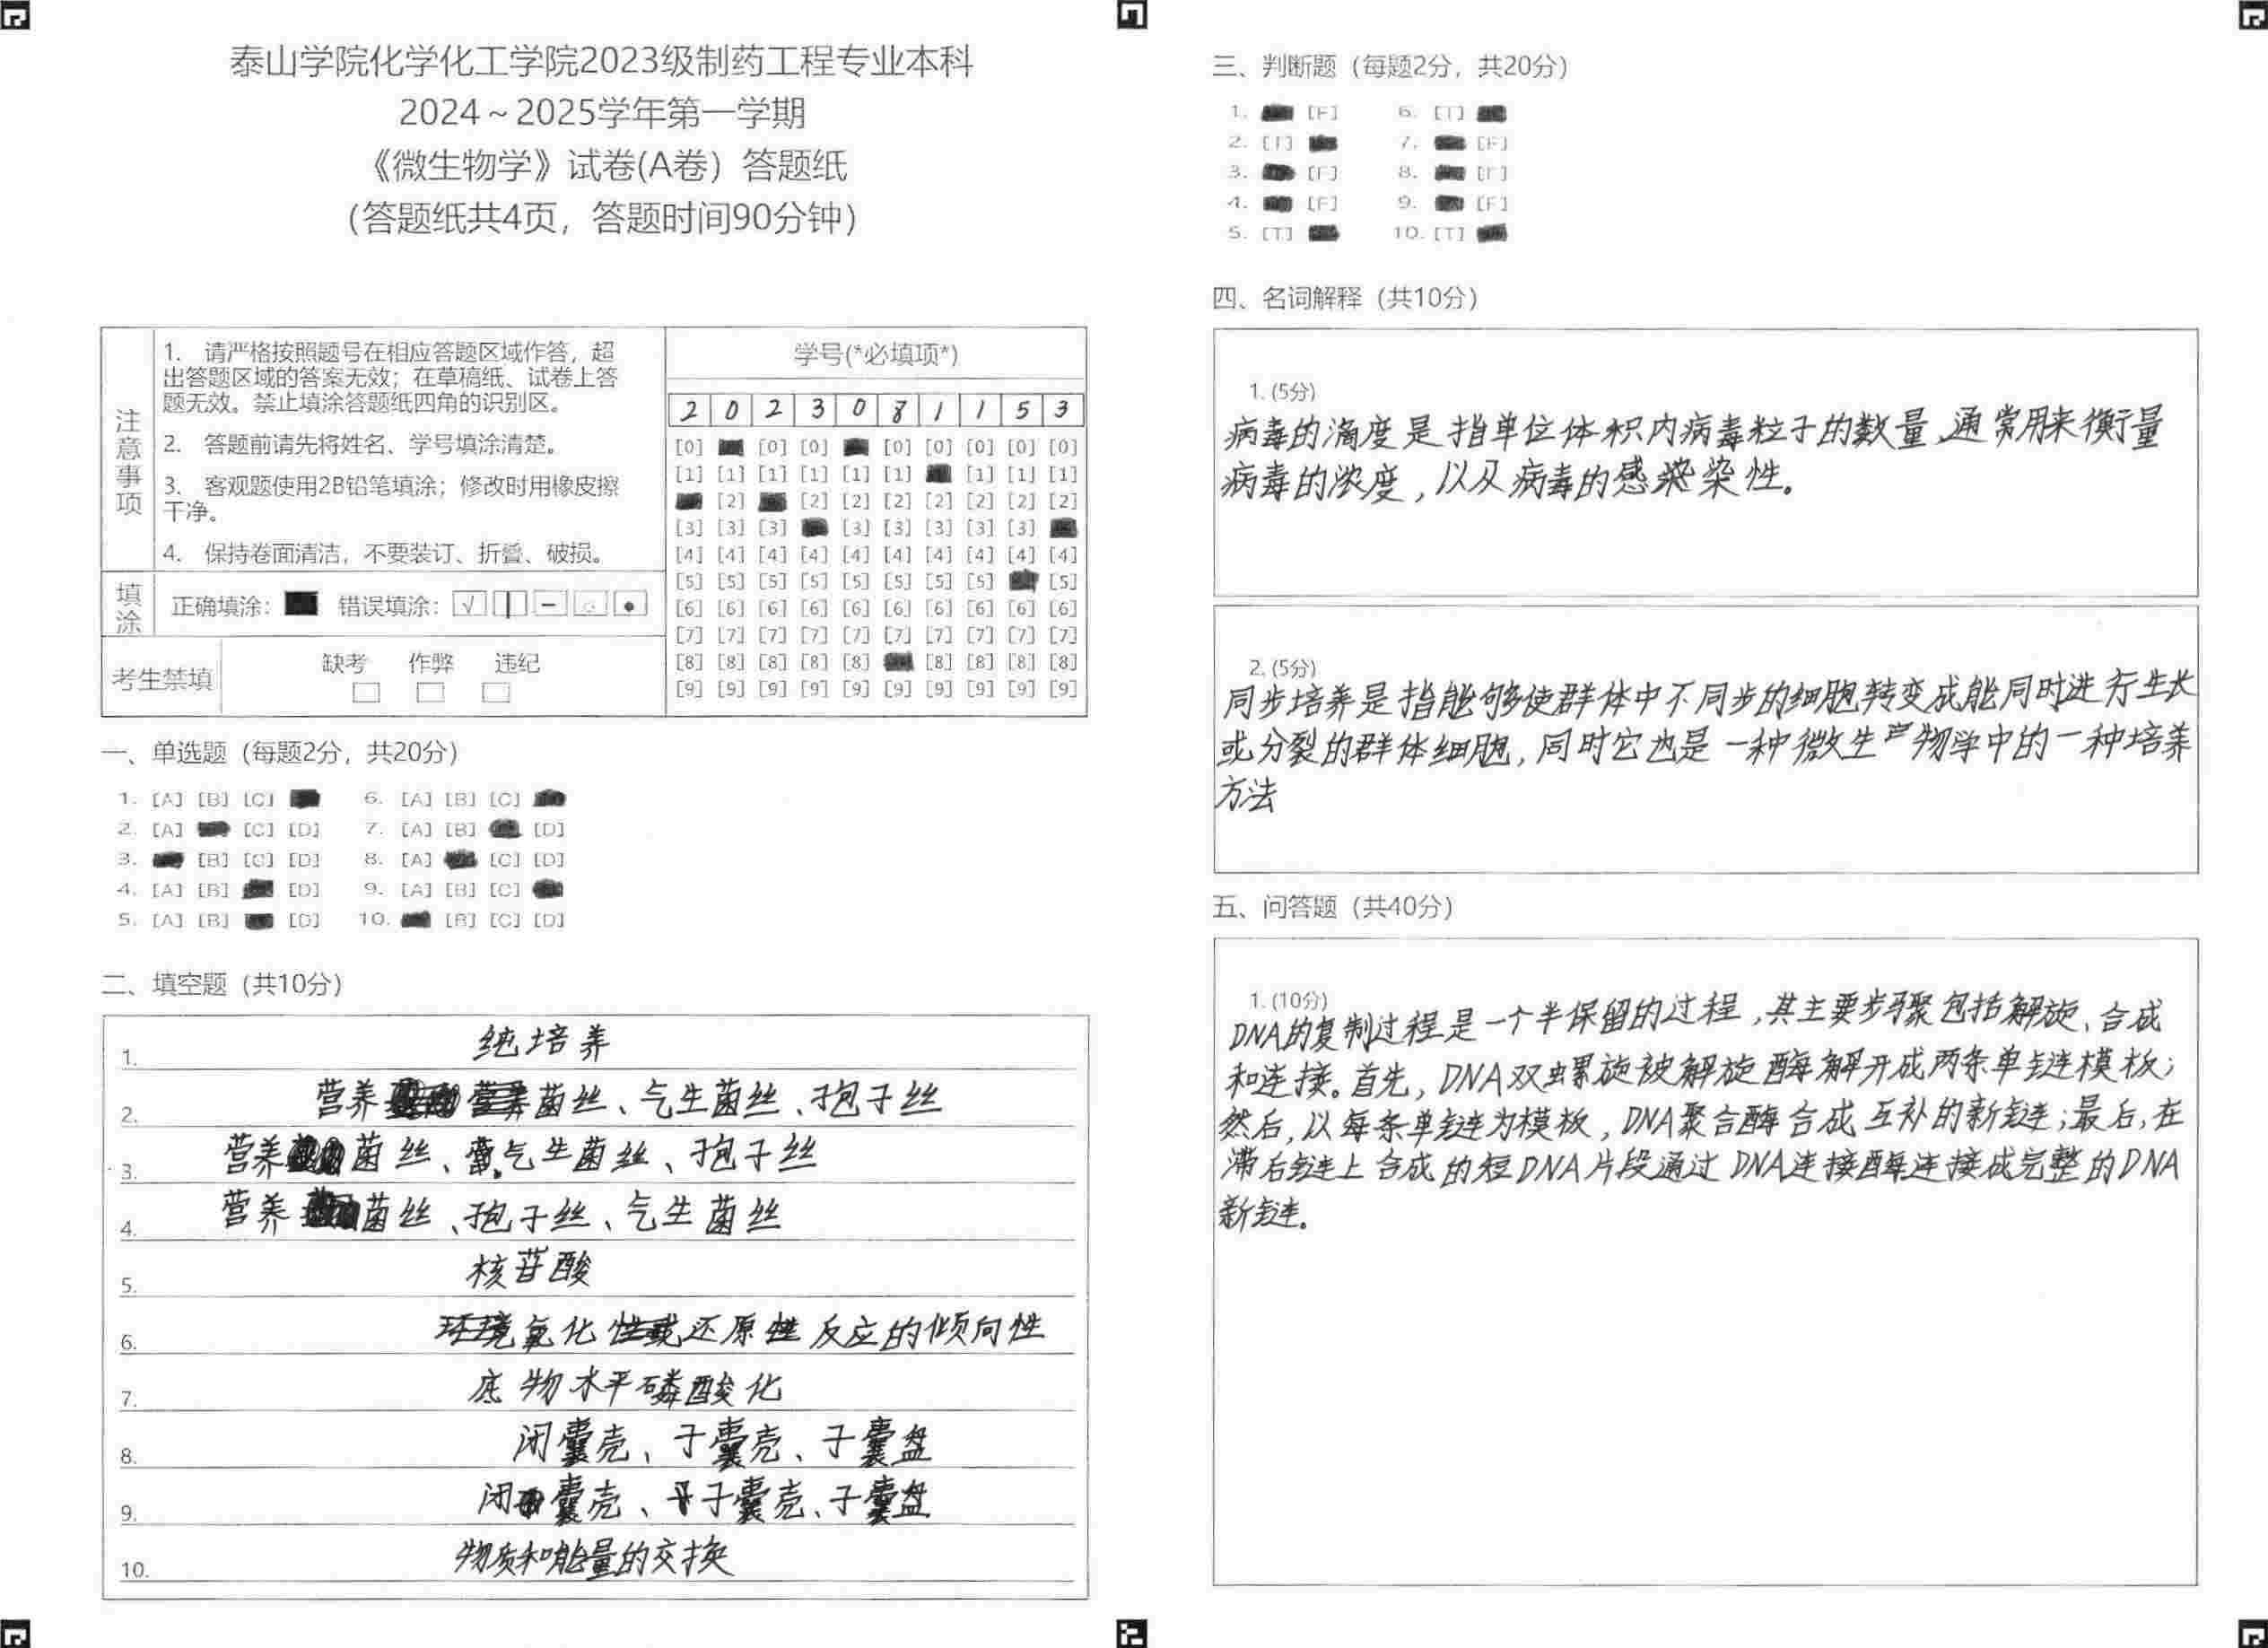 泰山学院化学化工学院2023级制药工程专业本科
2024～2025学年第一学期
《微生物学》试卷(A卷）答题纸
（答题纸共4页，答题时间90分钟）
注意事项
1. 请严格按照题号在相应答题区域作答，超
出答题区域的答案无效；在草稿纸、试卷上答
题无效。禁止填涂答题纸四角的识别区。
2. 答题前请先将姓名、学号填涂清楚。
3. 客观题使用2B铅笔填涂；修改时用橡皮擦
干净。
4. 保持卷面清洁，不要装订、折叠、破损。
填涂 正确填涂： 错误填涂：
考生禁填 缺考 作弊 违纪
学号(*必填项*)
2 0 2 3 0 8 1 1 5 3
[0] [0] [0] [0] [0] [0] [0] [0]
[1] [1] [1] [1] [1] [1] [1] [1] [1]
[2] [2] [2] [2] [2] [2] [2] [2]
[3] [3] [3] [3] [3] [3] [3] [3]
[4] [4] [4] [4] [4] [4] [4] [4] [4] [4]
[5] [5] [5] [5] [5] [5] [5] [5] [5]
[6] [6] [6] [6] [6] [6] [6] [6] [6] [6]
[7] [7] [7] [7] [7] [7] [7] [7] [7] [7]
[8] [8] [8] [8] [8] [8] [8] [8] [8]
[9] [9] [9] [9] [9] [9] [9] [9] [9] [9]
一、单选题（每题2分，共20分）
1. [A] [B] [C] 6. [A] [B] [C]
2. [A] [C] [D] 7. [A] [B] [D]
3. [B] [C] [D] 8. [A] [C] [D]
4. [A] [B] [D] 9. [A] [B] [C]
5. [A] [B] [D] 10. [B] [C] [D]
二、填空题（共10分）
1. 纯培养
2. 营养菌丝、气生菌丝、孢子丝
3. 营养菌丝、气生菌丝、孢子丝
4. 营养菌丝、孢子丝、气生菌丝
5. 核苷酸
6. 氧化还原反应的倾向性
7. 底物水平磷酸化
8. 闭囊壳、子囊壳、子囊盘
9. 闭囊壳、子囊壳、子囊盘
10. 物质和能量的交换
三、判断题（每题2分，共20分）
1. [F] 6. [T]
2. [T] 7. [F]
3. [F] 8. [F]
4. [F] 9. [F]
5. [T] 10. [T]
四、名词解释（共10分）
1. (5分)
病毒的滴度是指单位体积内病毒粒子的数量,通常用来衡量
病毒的浓度，以及病毒的感染性。
2. (5分)
同步培养是指能够使群体中不同步的细胞转变成能同时进行生长
或分裂的群体细胞，同时它也是一种微生物学中的一种培养
方法
五、问答题（共40分）
1. (10分)
DNA的复制过程是一个半保留的过程，其主要步骤包括解旋、合成
和连接。首先，DNA双虫螺旋被解旋酶解开成两条单链模板；
然后，以每条单链为模板，DNA聚合酶合成互补的新链；最后，在
滞后链上合成的短DNA片段通过DNA连接酶连接成完整的DNA
新链。